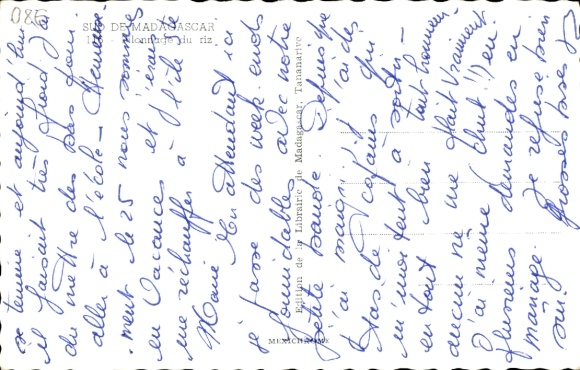 086
SUD DE MADAGASCAR
du riz
Edition de la Librairie de Madagascar, Tananarive
MEXICHROME
se termine et aujourd'hui
il faisait très froid j'ai
du mettre des bas pour
aller à l'école - Heureuse-
ment le 25 nous sommes
en vacances et j'écoute
me réchauffer à l'île
Marie. En attendant ici
je passe des week-ends
formidables avec notre
petite bande. Depuis que
j'ai maigri j'ai des
tas de copains qui
m'invitent à sortir -
en tout bien tout honneur
aucun ne me plait vraiment
J'ai même (chut !!) eu
plusieurs demandes en
mariage. Je refuse bien
sûr. Grosses bises